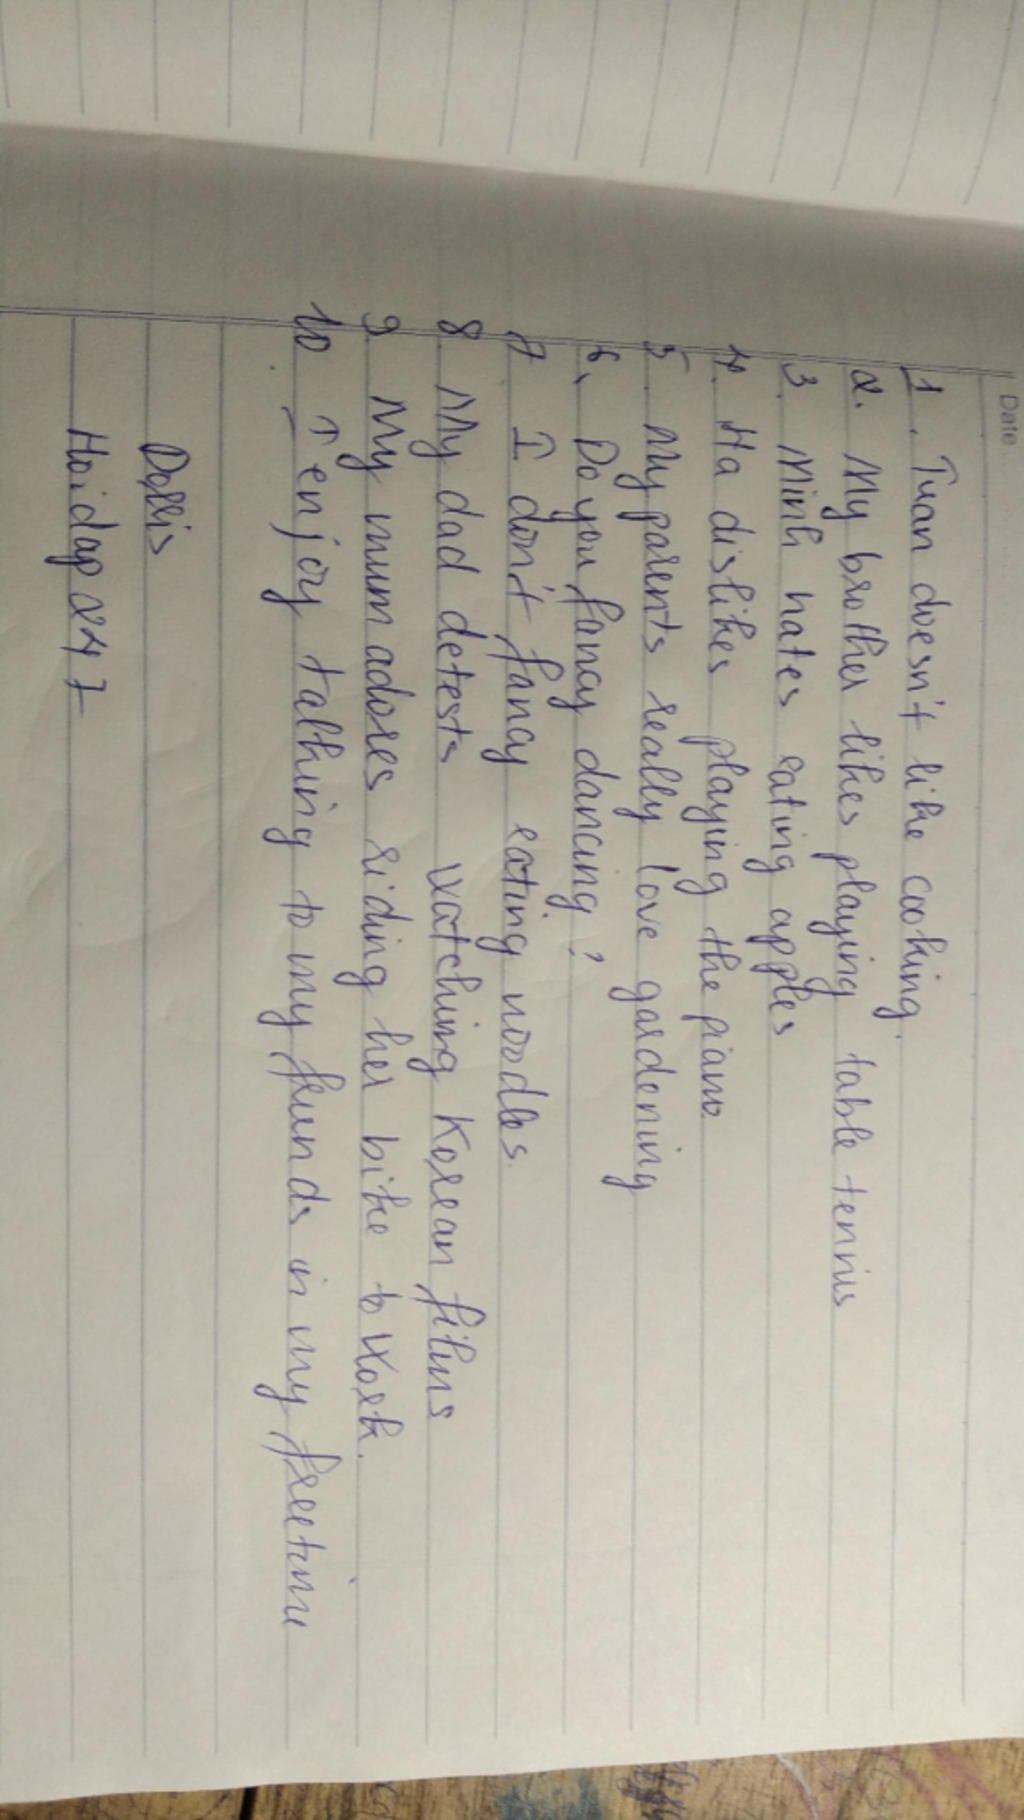 Date
1. Tuan doesn't like cooking.
2. My brother likes playing table tennis
3. Minh hates eating apples
4. Ha dislikes playing the piano
5. My parents really love gardening
6. Do you fancy dancing?
7 I don't fancy eating noodles.
8 My dad detests watching Korean films
9 My mum adores riding her bike to work.
10 I enjoy talking to my friends in my freetime
Hoidap247